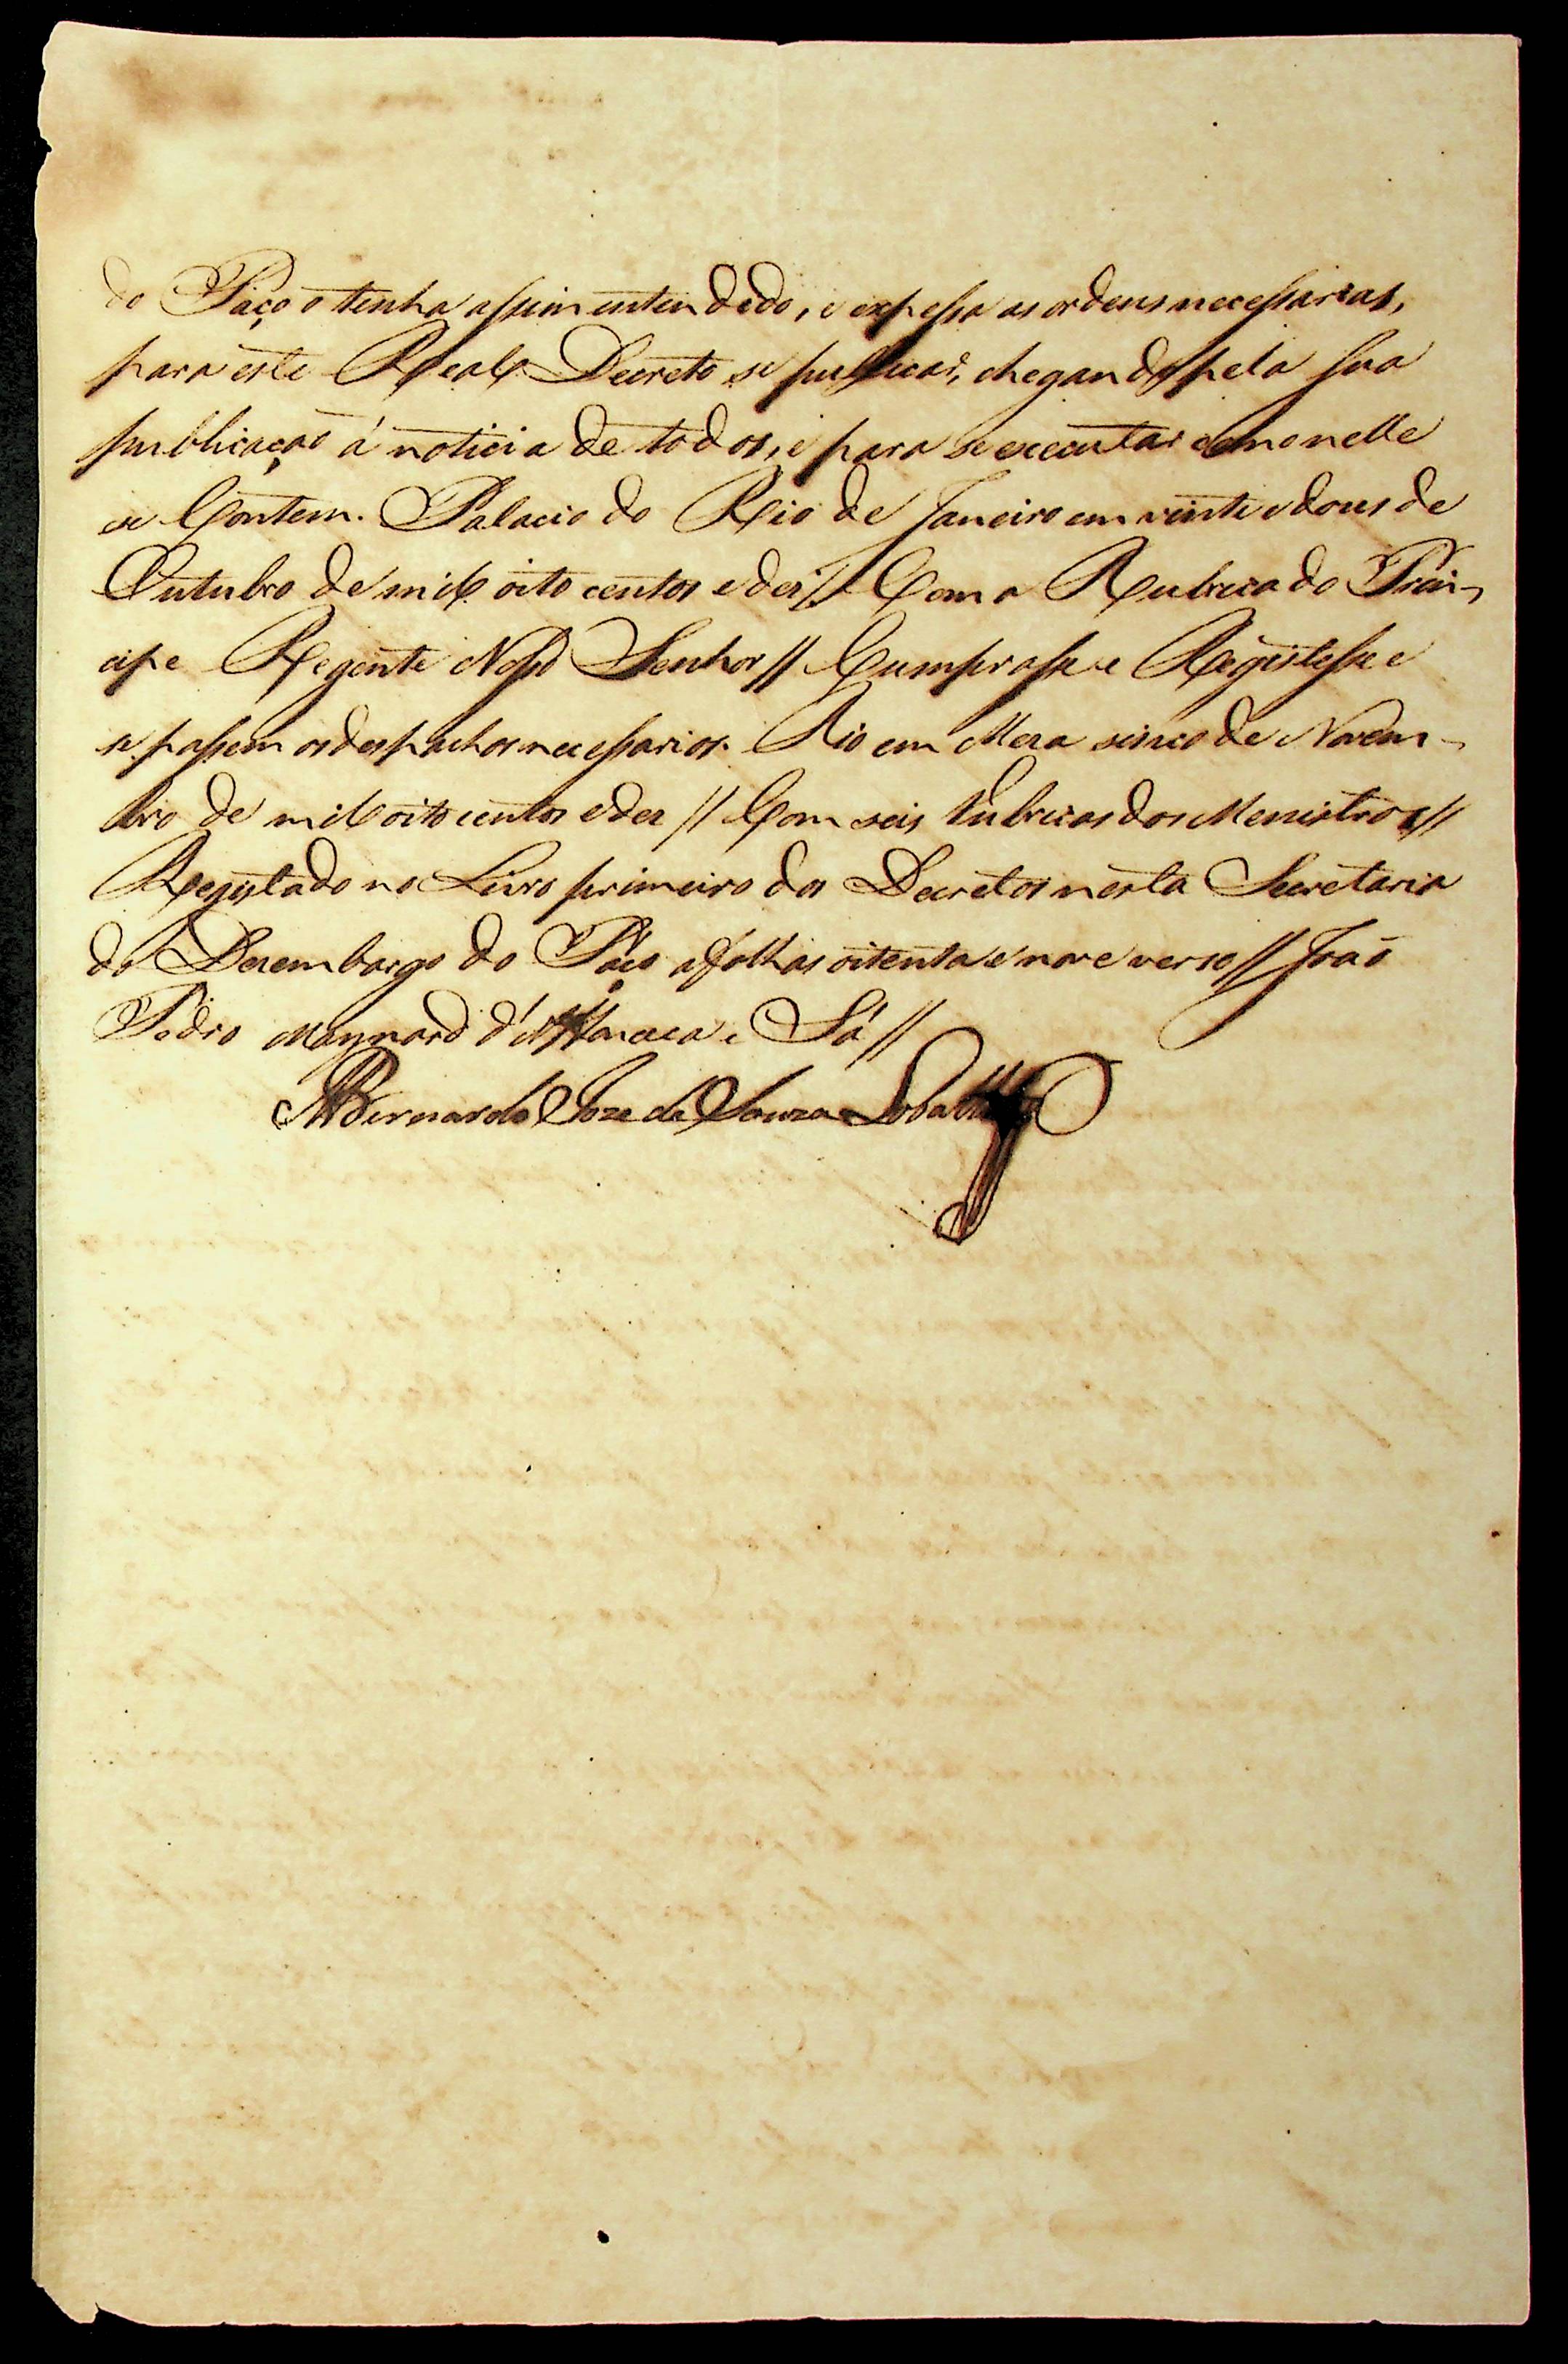 do Paço o tenha assim entendedo, e expessa as ordens necessarias,
para este Real Decreto se publicar, chegando pela sua
publicação á noticia de todos, e para se executar como nelle
se Contem. Palacio do Rio de Janeiro em vinte e dous de
Outubro de mil oito centos e dez // Com a Rubrica do Prin-
cipe Regente Nosso Senhor // Cumprasse e Registesse e
se passem os despachos necessarios. Rio em Meza sinco de Novem-
bro de mil oito centos e dez // Com seis Rubricas dos Menistros //
Registado no Livro primeiro dos Decretos nesta Secretaria
do Dezembargo do Paço a folhas oitenta e nove verso // João
Pedro Maynard d'Affonceca e Sá //
Bernardo Joze de Souza Lobatto